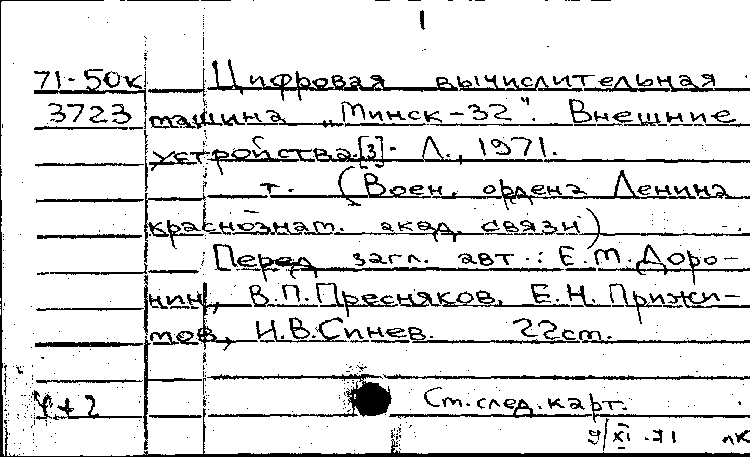 1
71-50к Цифровая вычислительная
3723 машина „Минск-32". Внешние
устройства.[3]. Л., 1971.
т. (Воен. ордена Ленина
краснознам. акад. связи)
Перед загл. авт.: Е.М.Доро-
нин, В.П.Пресняков, Е.Н. Прижи-
мов, И.В.Синев. 22см.
4+2 Ст.след.карт.
XI -71 лк